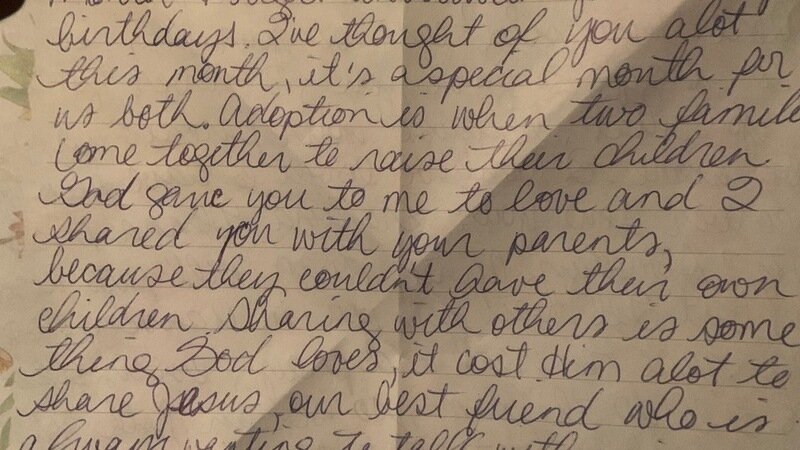 birthdays. I've thought of you alot
this month, it's a special month for
us both. Adoption is when two famile
come together to raise their children
God gave you to me to love and I
shared you with your parents,
because they couldn't have their own
children. Sharing with others is some
thing God loves, it cost Him alot to
share Jesus, our best friend who is
always wanting to talk with